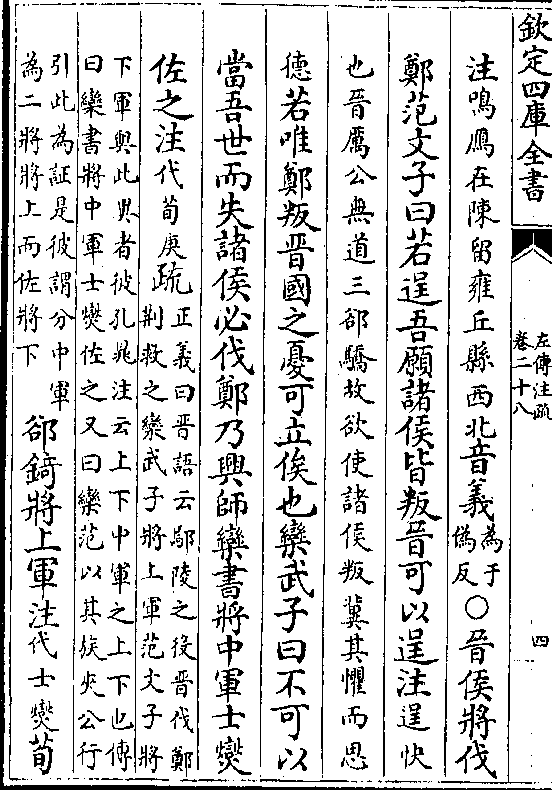 欽定四庫全書
左傳注疏
卷二十八
四
注鳴鴈在陳留雍丘縣西北音義為于
偽反〇晉侯將伐
鄭范文子曰若逞吾願諸侯皆叛晉可以逞注逞快
也晉厲公無道三郤驕故欲使諸侯叛冀其懼而思
德若唯鄭叛晉國之憂可立俟也欒武子曰不可以
當吾世而失諸侯必伐鄭乃興師欒書將中軍士燮
佐之注代荀庚疏正義曰晉語云鄢陵之役晉伐鄭
荆救之欒武子將上軍范文子將
下軍與此異者彼孔晁注云上下中軍之上下也傳
曰欒書將中軍士燮佐之又曰欒范以其族夾公行
引此為証是彼謂分中軍
為二將將上而佐將下
郤錡將上軍注代士燮荀